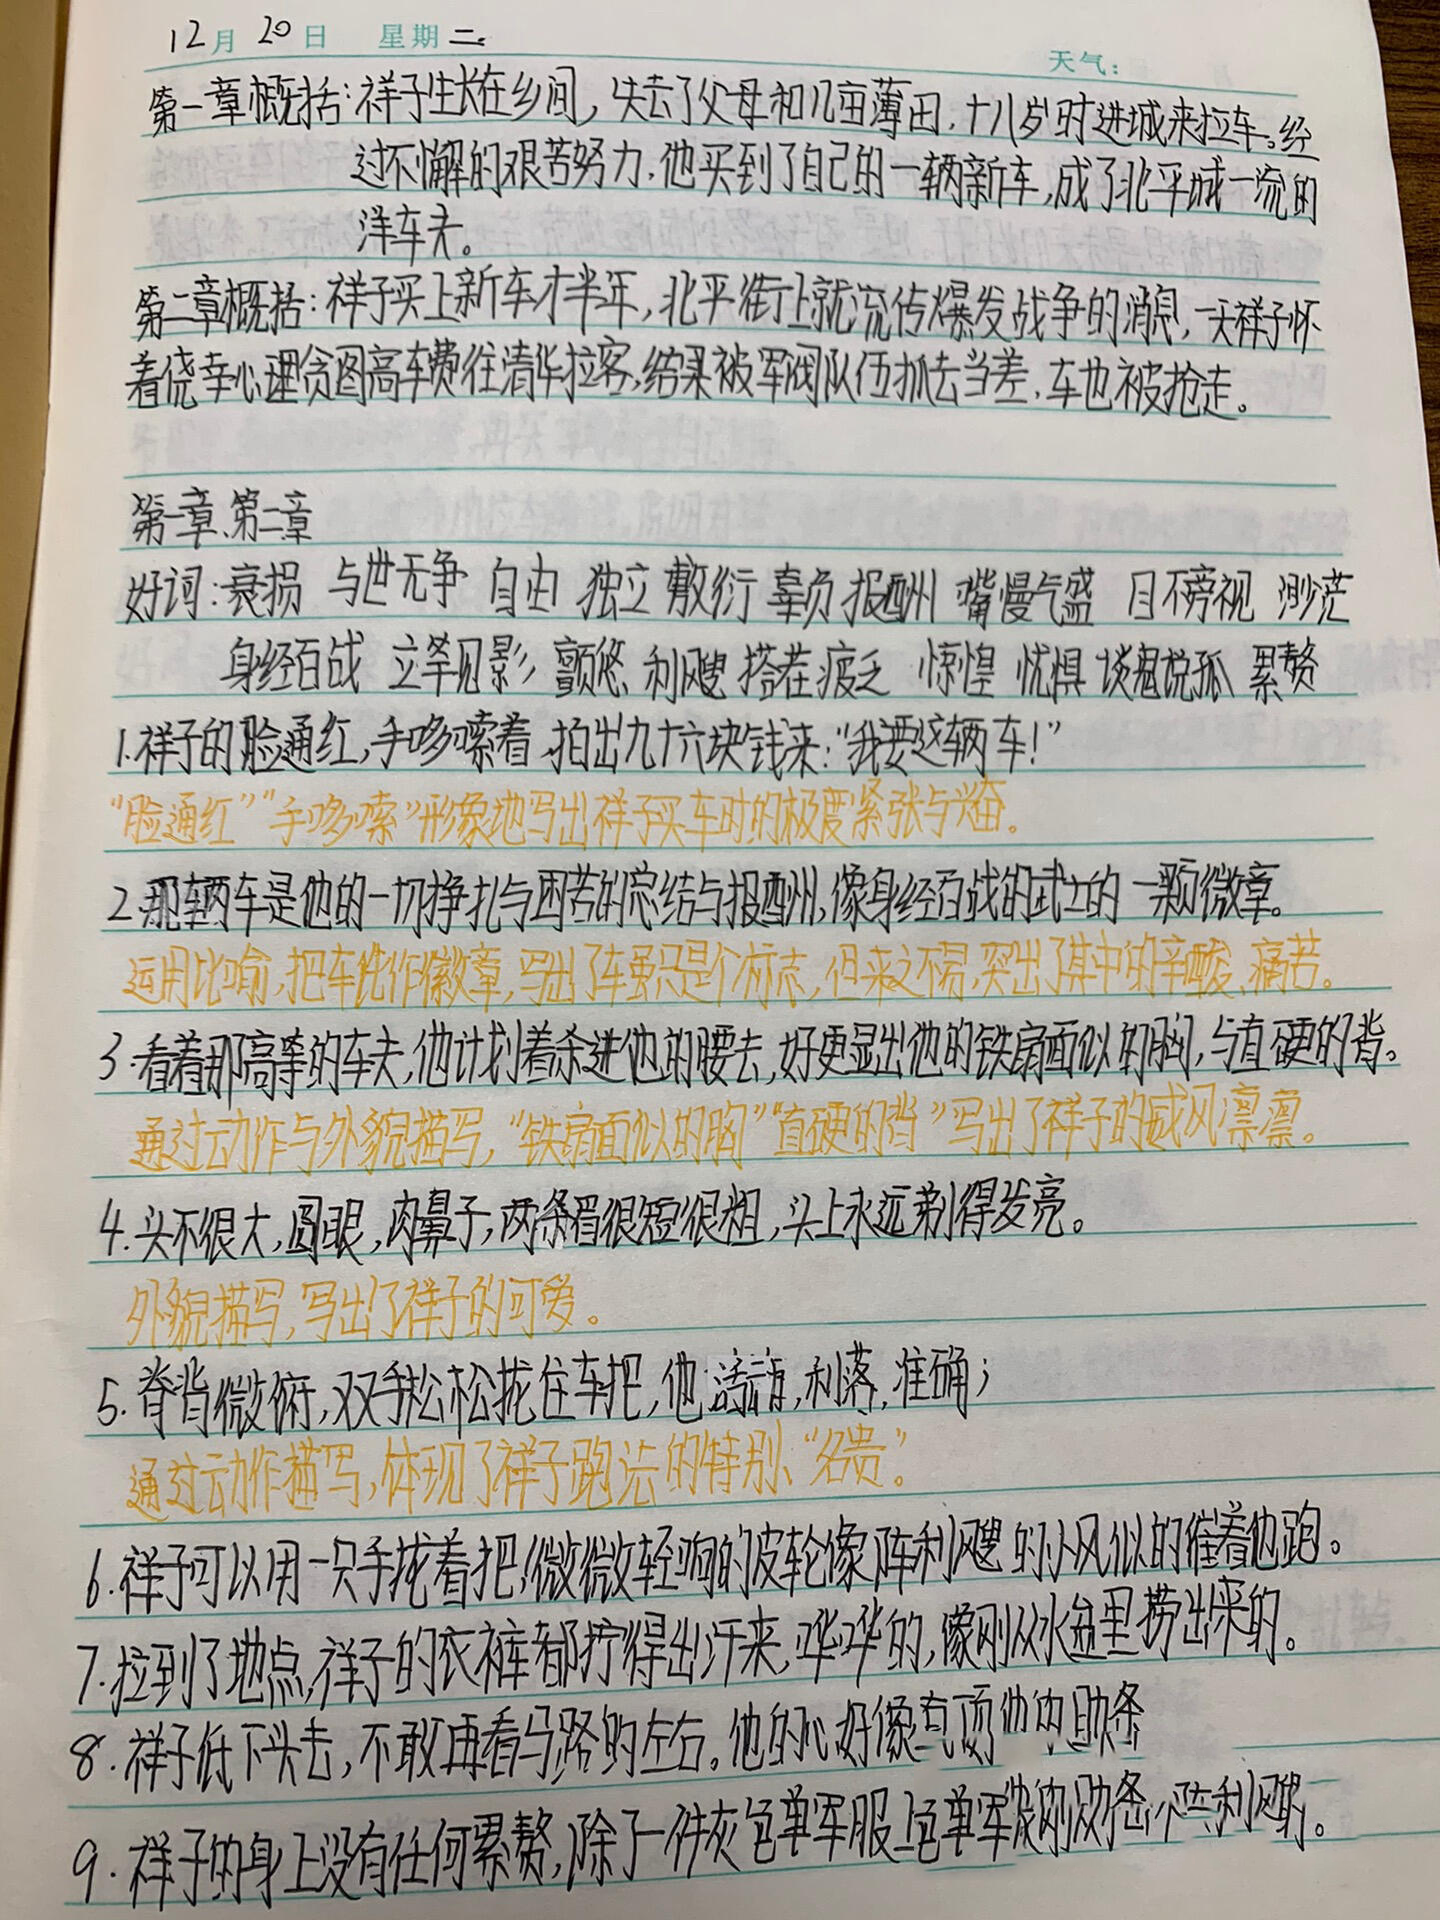 12月20日 星期二。 天气:
第一章概括:祥子生长在乡间,失去了父母和几亩薄田,十八岁时进城来拉车。经
过不懈的艰苦努力,他买到了自己的一辆新车,成了北平城一流的
洋车夫。
第二章概括:祥子买上新车才半年,北平街上就流传爆发战争的消息,一天祥子怀
着侥幸心理贪图高车费往清华拉客,结果被军阀队伍抓去当差,车也被抢走。
第一章、第二章
好词:衰损 与世无争 自由 独立 敷衍 辜负 报酬 嘴慢气盛 目不旁视 渺茫
身经百战 立竿见影 颤悠 利飕 搭茬 疲乏 惊惶 忧惧 谈鬼说孤 累赘
1.祥子的脸通红,手哆嗦着,拍出九十六块钱来:“我要这辆车!”
“脸通红”“手哆嗦”形象地写出祥子买车时的极度紧张与兴奋。
2.那辆车是他的一切挣扎与困苦的总结与报酬,像身经百战的武士的一颗微章。
运用比喻,把车比作徽章,写出了车虽只是个标志,但来之不易,突出了其中的辛酸、痛苦。
3.看着那高等的车夫,他计划着杀进他的腰去,好更显出他的铁扇面似的胸,与直硬的背。
通过动作与外貌描写,“铁扇面似的胸”“直硬的背”写出了祥子的威风凛凛。
4.头不很大,圆眼,肉鼻子,两条眉很短很粗,头上永远剃得发亮。
外貌描写,写出了祥子的可爱。
5.脊背微俯,双手松松拢住车把,他活动,利落,准确;
通过动作描写,体现了祥子跑法的特别、“名贵”。
6.祥子可以用一只手拢着把,微微轻响的皮轮像阵利飕的小风似的催着他跑。
7.拉到了地点,祥子的衣裤都拧得出汗来,哗哗的,像刚从水盆里捞出来的。
8.祥子低下头去,不敢再看马路的左右。他的心好像直顶他的肋条
9.祥子的身上没有任何累赘,除了一件灰色单军服上